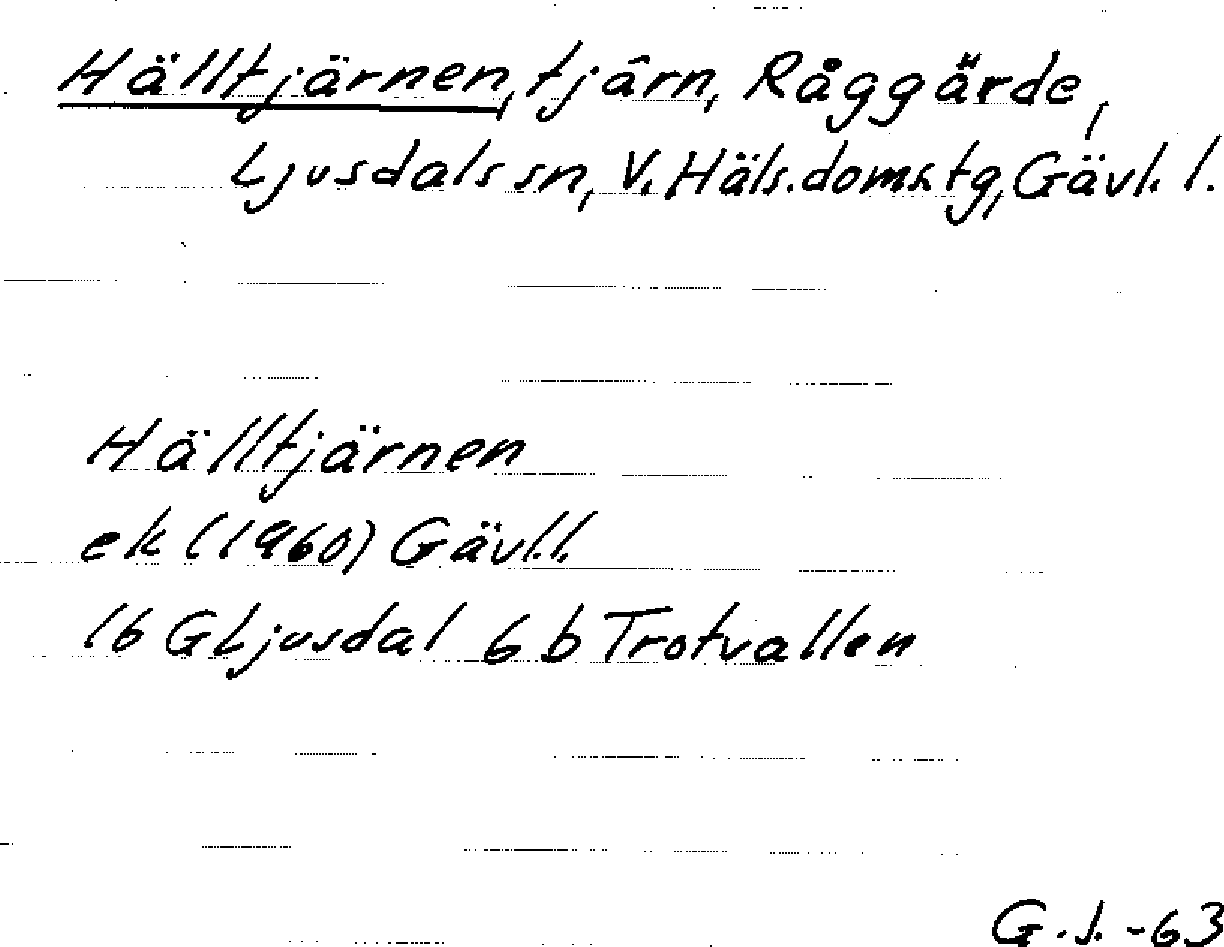 Hälltjärnen, tjärn, Råggärde,
Ljusdals sn, V. Häls. doms. tg, Gävl. l.
Hälltjärnen
ek (1960) Gävl. l.
16 G Ljusdal 6 b Trotvallen
G. J. -63